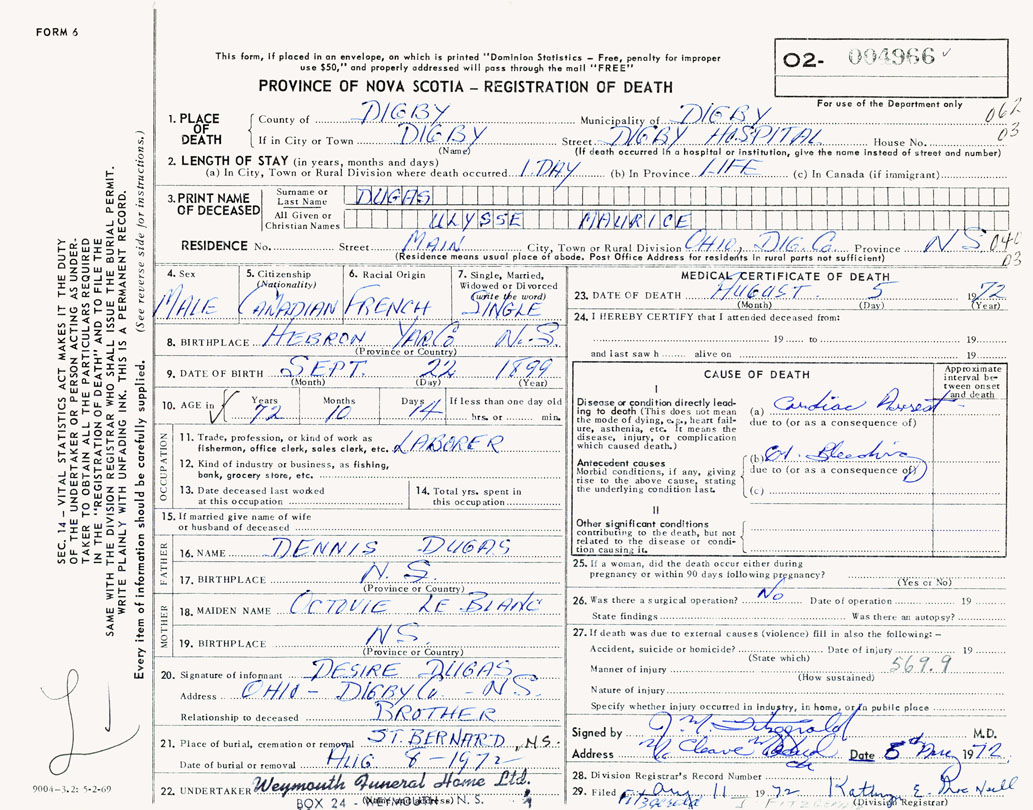 FORM 6
This form, if placed in an envelope, on which is printed "Dominion Statistics – Free, penalty for improper
use $50," and properly addressed will pass through the mail "FREE"
O2- 004966
PROVINCE OF NOVA SCOTIA – REGISTRATION OF DEATH
For use of the Department only
062
03
1. PLACE OF DEATH
County of DIGBY Municipality of DIGBY
If in City or Town DIGBY Street DIGBY HOSPITAL House No.
(Name) (If death occurred in a hospital or institution, give the name instead of street and number)
2. LENGTH OF STAY (in years, months and days)
(a) In City, Town or Rural Division where death occurred 1 DAY (b) In Province LIFE (c) In Canada (if immigrant)
3. PRINT NAME OF DECEASED
Surname or Last Name DUGAS
All Given or Christian Names ULYSSE MAURICE
RESIDENCE No. Street MAIN City, Town or Rural Division OHIO, DIG. Co. Province N S 040
(Residence means usual place of abode. Post Office Address for residents in rural parts not sufficient) 03
4. Sex MALE
5. Citizenship (Nationality) CANADIAN
6. Racial Origin FRENCH
7. Single, Married, Widowed or Divorced (write the word) SINGLE
8. BIRTHPLACE HEBRON YAR Co N.S.
(Province or Country)
9. DATE OF BIRTH SEPT. 22 1899
(Month) (Day) (Year)
10. AGE in Years 72 Months 10 Days 14 If less than one day old
hrs. or min.
OCCUPATION
11. Trade, profession, or kind of work as
fisherman, office clerk, sales clerk, etc. LABORER
12. Kind of industry or business, as fishing,
bank, grocery store, etc.
13. Date deceased last worked
at this occupation
14. Total yrs. spent in
this occupation
15. If married give name of wife
or husband of deceased
FATHER
16. NAME DENNIS DUGAS
17. BIRTHPLACE N. S.
(Province or Country)
MOTHER
18. MAIDEN NAME OCTOVIE LE BLANC
19. BIRTHPLACE N S.
(Province or Country)
20. Signature of informant DESIRE DUGAS
Address OHIO – DIGBY Co – N S.
Relationship to deceased BROTHER
21. Place of burial, cremation or removal ST. BERNARD, N S.
Date of burial or removal AUG 8 – 1972
22. UNDERTAKER Weymouth Funeral Home Ltd.
BOX 24 - N. S.
MEDICAL CERTIFICATE OF DEATH
23. DATE OF DEATH AUGUST 5 1972
(Month) (Day) (Year)
24. I HEREBY CERTIFY that I attended deceased from:
19 to 19
and last saw h alive on 19
CAUSE OF DEATH
Approximate interval between onset and death
I
Disease or condition directly leading to death (This does not mean
the mode of dying, e.g., heart failure, asthenia, etc. It means the
disease, injury, or complication
which caused death.)
(a) Cardiac Arrest
due to (or as a consequence of)
Antecedent causes
Morbid conditions, if any, giving
rise to the above cause, stating
the underlying condition last.
(b) Bleeding
due to (or as a consequence of)
(c)
II
Other significant conditions
contributing to the death, but not
related to the disease or condition causing it.
25. If a woman, did the death occur either during
pregnancy or within 90 days following pregnancy?
(Yes or No)
26. Was there a surgical operation? No Date of operation 19
State findings Was there an autopsy?
27. If death was due to external causes (violence) fill in also the following: –
Accident, suicide or homicide? Date of injury 19
(State which) 569.9
Manner of injury
(How sustained)
Nature of injury
Specify whether injury occurred in industry, in home, or in public place
Signed by M.D.
Address Date 5th 1972
28. Division Registrar's Record Number
29. Filed Aug 11 1972
(Division Registrar)
SEC. 14 – VITAL STATISTICS ACT MAKES IT THE DUTY
OF THE UNDERTAKER OR PERSON ACTING AS UNDER-
TAKER TO OBTAIN ALL THE PARTICULARS REQUIRED
IN THE "REGISTRATION OF DEATH" AND TO FILE THE
SAME WITH THE DIVISION REGISTRAR WHO SHALL ISSUE THE BURIAL PERMIT.
WRITE PLAINLY WITH UNFADING INK. THIS IS A PERMANENT RECORD.
Every item of information should be carefully supplied. (See reverse side for instructions.)
9004–3.2: 5-2-69